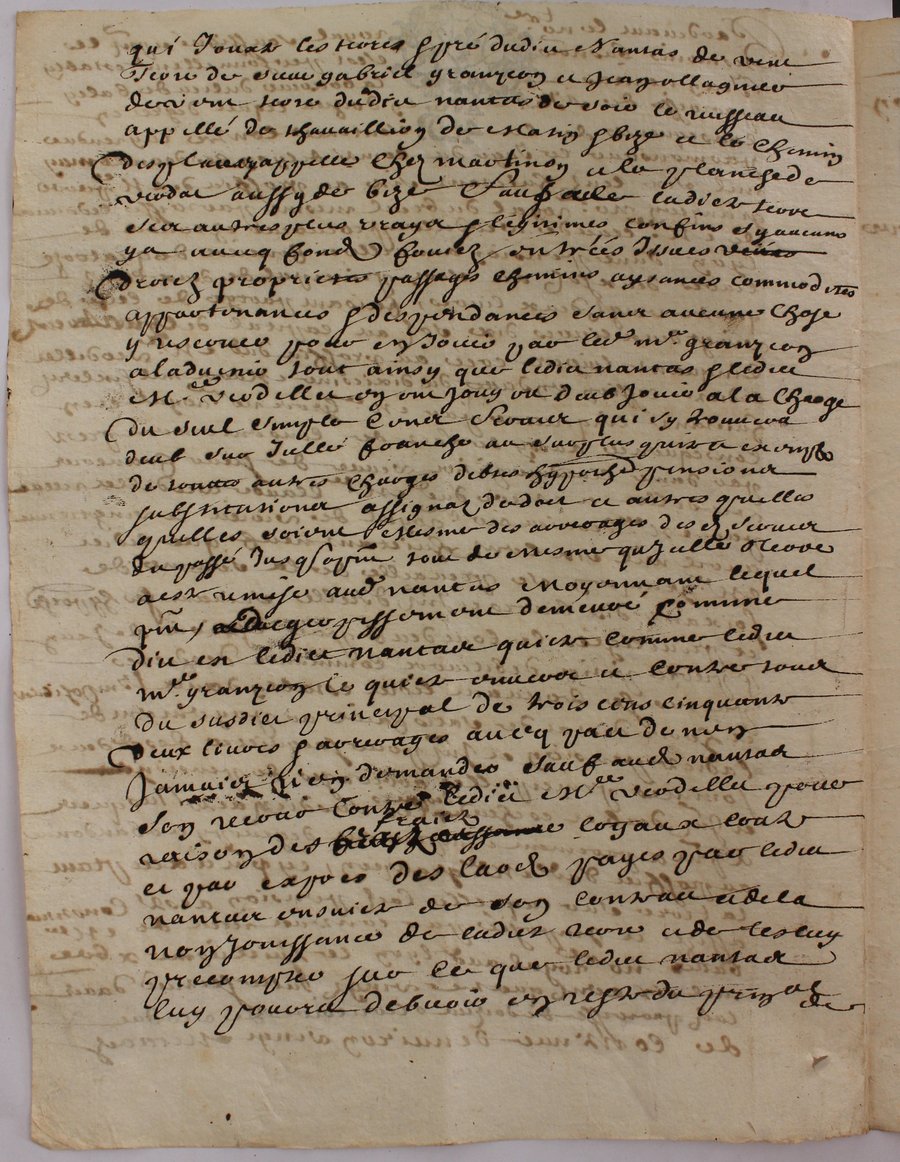 qui Jouxte les terres & pré dudict Nantas de vent
Terre de Jean gabriel grançon et Jean ollagnier
terre dudict nantas de soir le ruisseau
appellé de de & bize et le chemin
appelle Chez martinon et la planche de
aussy de bize Sauf a ladicte terre
ses autres plus vrays & legitimes confins sy aucuns
y a avecq fondz entrées Issues
droictz proprietés passages chemins aysances commodites
appartenances & despendances sans aucune chose
y reserver pour en Jouir par led. mr. grançon
a ladvenir tout ainsy que ledict nantas & ledict
Mre. verdellet en ont Jouy ou deub Jouir a la charge
du seul simple cens qui sy trouvera
deub sur Icelle franche au surplus quitte et exempte
de toutes autres charges debtes hypotheques pensions
substitutions assignat de dot et autres quelles
quelles soient Mesme des arrerages desd.
du passé Jusqs a pnt tout de mesme qu'Icelle terre
a esté remise aud. nantas Moyennant lequel
pnt demeure comme
dict est ledict nantas quicte comme ledict
mre. grançon le quicte envers et contre tous
du susdict principal de trois cens cinquante
deux livres & arrerages avecq pact de n'en
Jamais rien demander sauf aud. nantas
son recours contre ledict Mre. verdellet pour
raison des fraictz loyaux coustz
et par exprès des laodz payés par ledict
nantas ensuitte de son contract et de la
non Jouissance de ladicte terre et de les luy
precompter sur ce que ledict nantas
luy pourra debvoir en reste du prix de